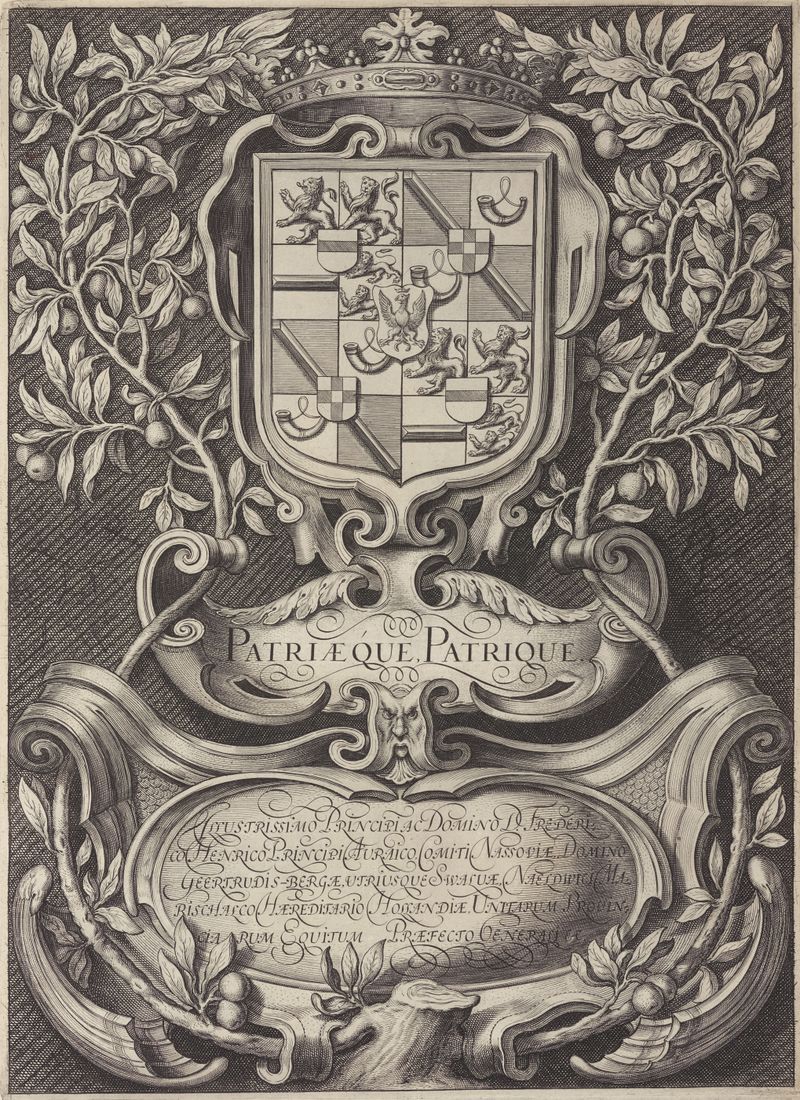 PATRIÆQUE, PATRIQUE.
ILLUSTRISSIMO PRINCIPI AC DOMINO D. FREDERI,
CO HENRICO PRINCIPI AURAICO, COMITI NASSOVIÆ, DOMINO
GEERTRUDIS-BERGÆ, UTRIUSQUE SWALUÆ, NAELDWICH, MA,
RISCHALCO HÆREDITARIO HOLLANDIÆ, UNITARUM PROVIN,
CIARUM EQUITUM PRÆFECTO GENERALI